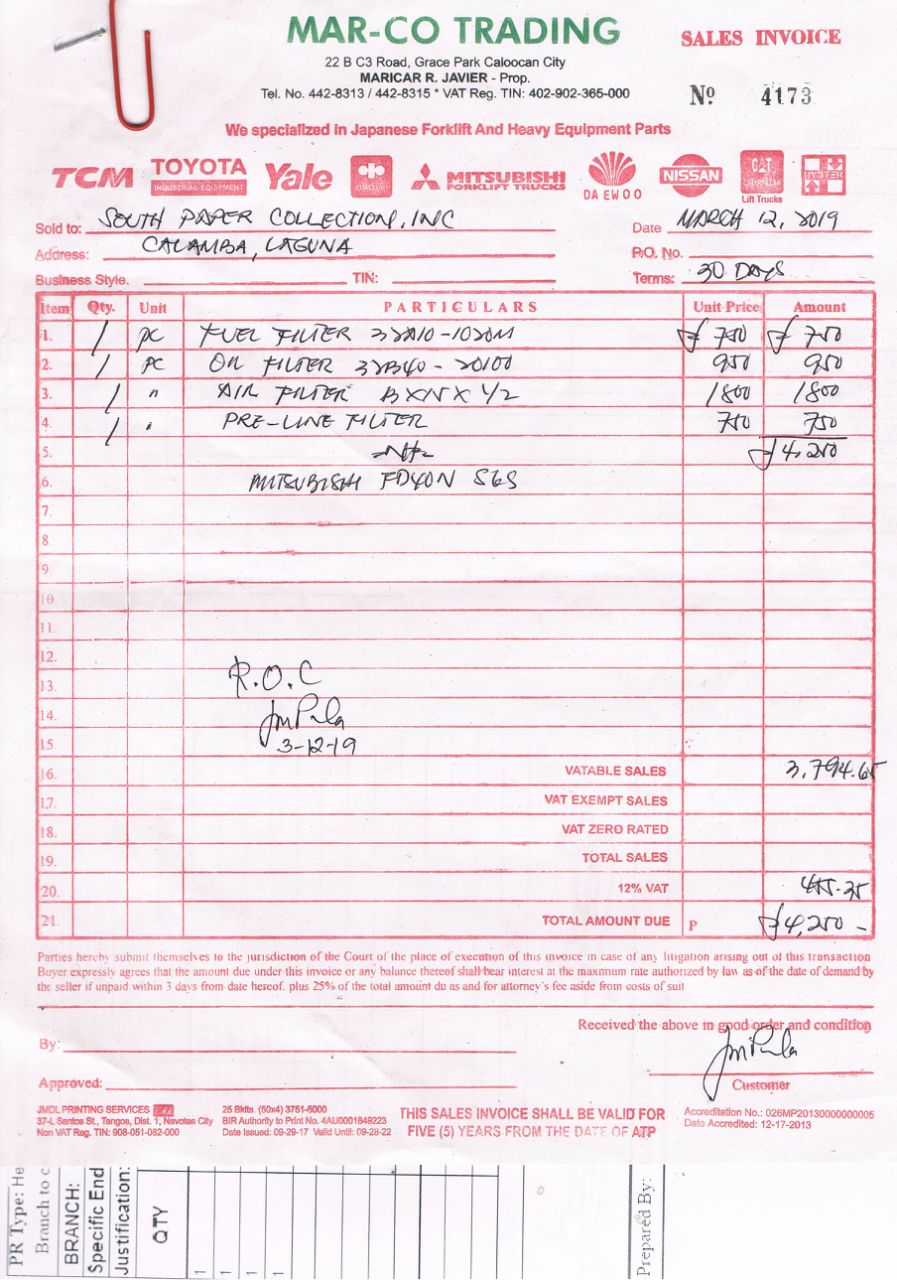 MAR-CO TRADING
22 B C3 Road, Grace Park Caloocan City
MARICAR R. JAVIER - Prop.
Tel. No. 442-8313 / 442-8315 * VAT Reg. TIN: 402-902-365-000
SALES INVOICE
Nº 4173
We specialized in Japanese Forklift And Heavy Equipment Parts
TCM TOYOTA INDUSTRIAL EQUIPMENT Yale KOMATSU MITSUBISHI FORKLIFT TRUCKS DAEWOO NISSAN CAT CATERPILLAR Lift Trucks HYSTER
Sold to: SOUTH PAPER COLLECTION, INC Date MARCH 12, 2019
Address: CALAMBA, LAGUNA P.O. No.
Business Style. TIN: Terms: 30 DAYS
Item Qty. Unit PARTICULARS Unit Price Amount
1. 1 pc FUEL FILTER 32A10-1020M ₱ 750 ₱ 750
2. 1 pc OIL FILTER 32B40-20100 950 950
3. 1 " AIR FILTER 1800 1800
4. 1 " PRE-LINE FILTER 750 750
5. ₱4,250
6. MITSUBISHI FD40N S6S
7.
8.
9
10
11.
12.
13. R.O.C
14.
15 3-12-19
16. VATABLE SALES 3,794.65
17. VAT EXEMPT SALES
18. VAT ZERO RATED
19. TOTAL SALES
20. 12% VAT 455.35
21. TOTAL AMOUNT DUE P ₱4,250 -
Parties hereby submit themselves to the jurisdiction of the Court of the place of execution of this invoice in case of any litigation arising out of this transaction
Buyer expressly agrees that the amount due under this invoice or any balance thereof shall bear interest at the maximum rate authorized by law as of the date of demand by
the seller if unpaid within 3 days from date hereof. plus 25% of the total amount du as and for attorney's fee aside from costs of suit
Received the above in good order and condition
By:
Approved:
Customer
JMDL PRINTING SERVICES
37-L Santos St., Tangos, Dist. 1, Navotas City
Non VAT Reg. TIN: 908-051-082-000
25 Bklts. (50x4) 3751-5000
BIR Authority to Print No. 4AU0001849223
Date Issued: 09-29-17 Valid Until: 09-28-22
THIS SALES INVOICE SHALL BE VALID FOR
FIVE (5) YEARS FROM THE DATE OF ATP
Accreditation No.: 026MP20130000000005
Date Accredited: 12-17-2013
PR Type: He
Branch to c
BRANCH:
Specific End
Justification:
QTY
1
1
1
1
Prepared By: